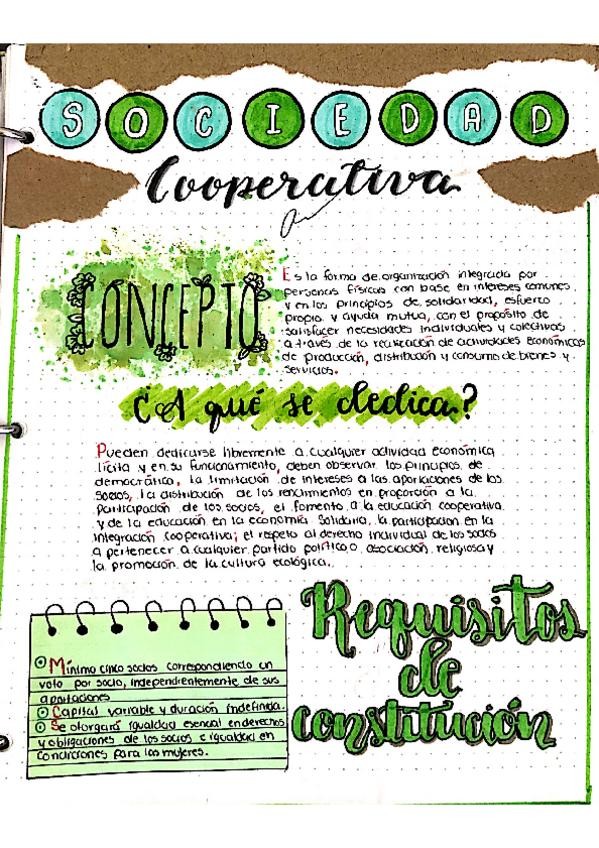 SOCIEDAD
Cooperativa
CONCEPTO
Es la forma de organización integrada por
personas físicas con base en intereses comunes
y en los principios de solidaridad, esfuerzo
propio y ayuda mutua, con el propósito de
satisfacer necesidades individuales y colectivas
a través de la realización de actividades económicas
de producción, distribución y consumo de bienes y
servicios.
¿A qué se dedica?
Pueden dedicarse libremente a cualquier actividad económica
lícita y en su funcionamiento, deben observar los principios de
democrática, la limitación de intereses a las aportaciones de los
socios, la distribución de los rendimientos en proporción a la
participación de los socios, el fomento a la educación cooperativa
y de la educación en la economía solidaria, la participación en la
integración cooperativa; el respeto al derecho individual de los socios
a pertenecer a cualquier partido político o asociación religiosa y
la promoción de la cultura ecológica.
Requisitos
de
constitución
Mínimo cinco socios correspondiendo un
voto por socio, independientemente de sus
aportaciones
Capital variable y duración indefinida.
Se otorgará igualdad esencial en derechos
y obligaciones de los socios e igualdad en
condiciones para las mujeres.